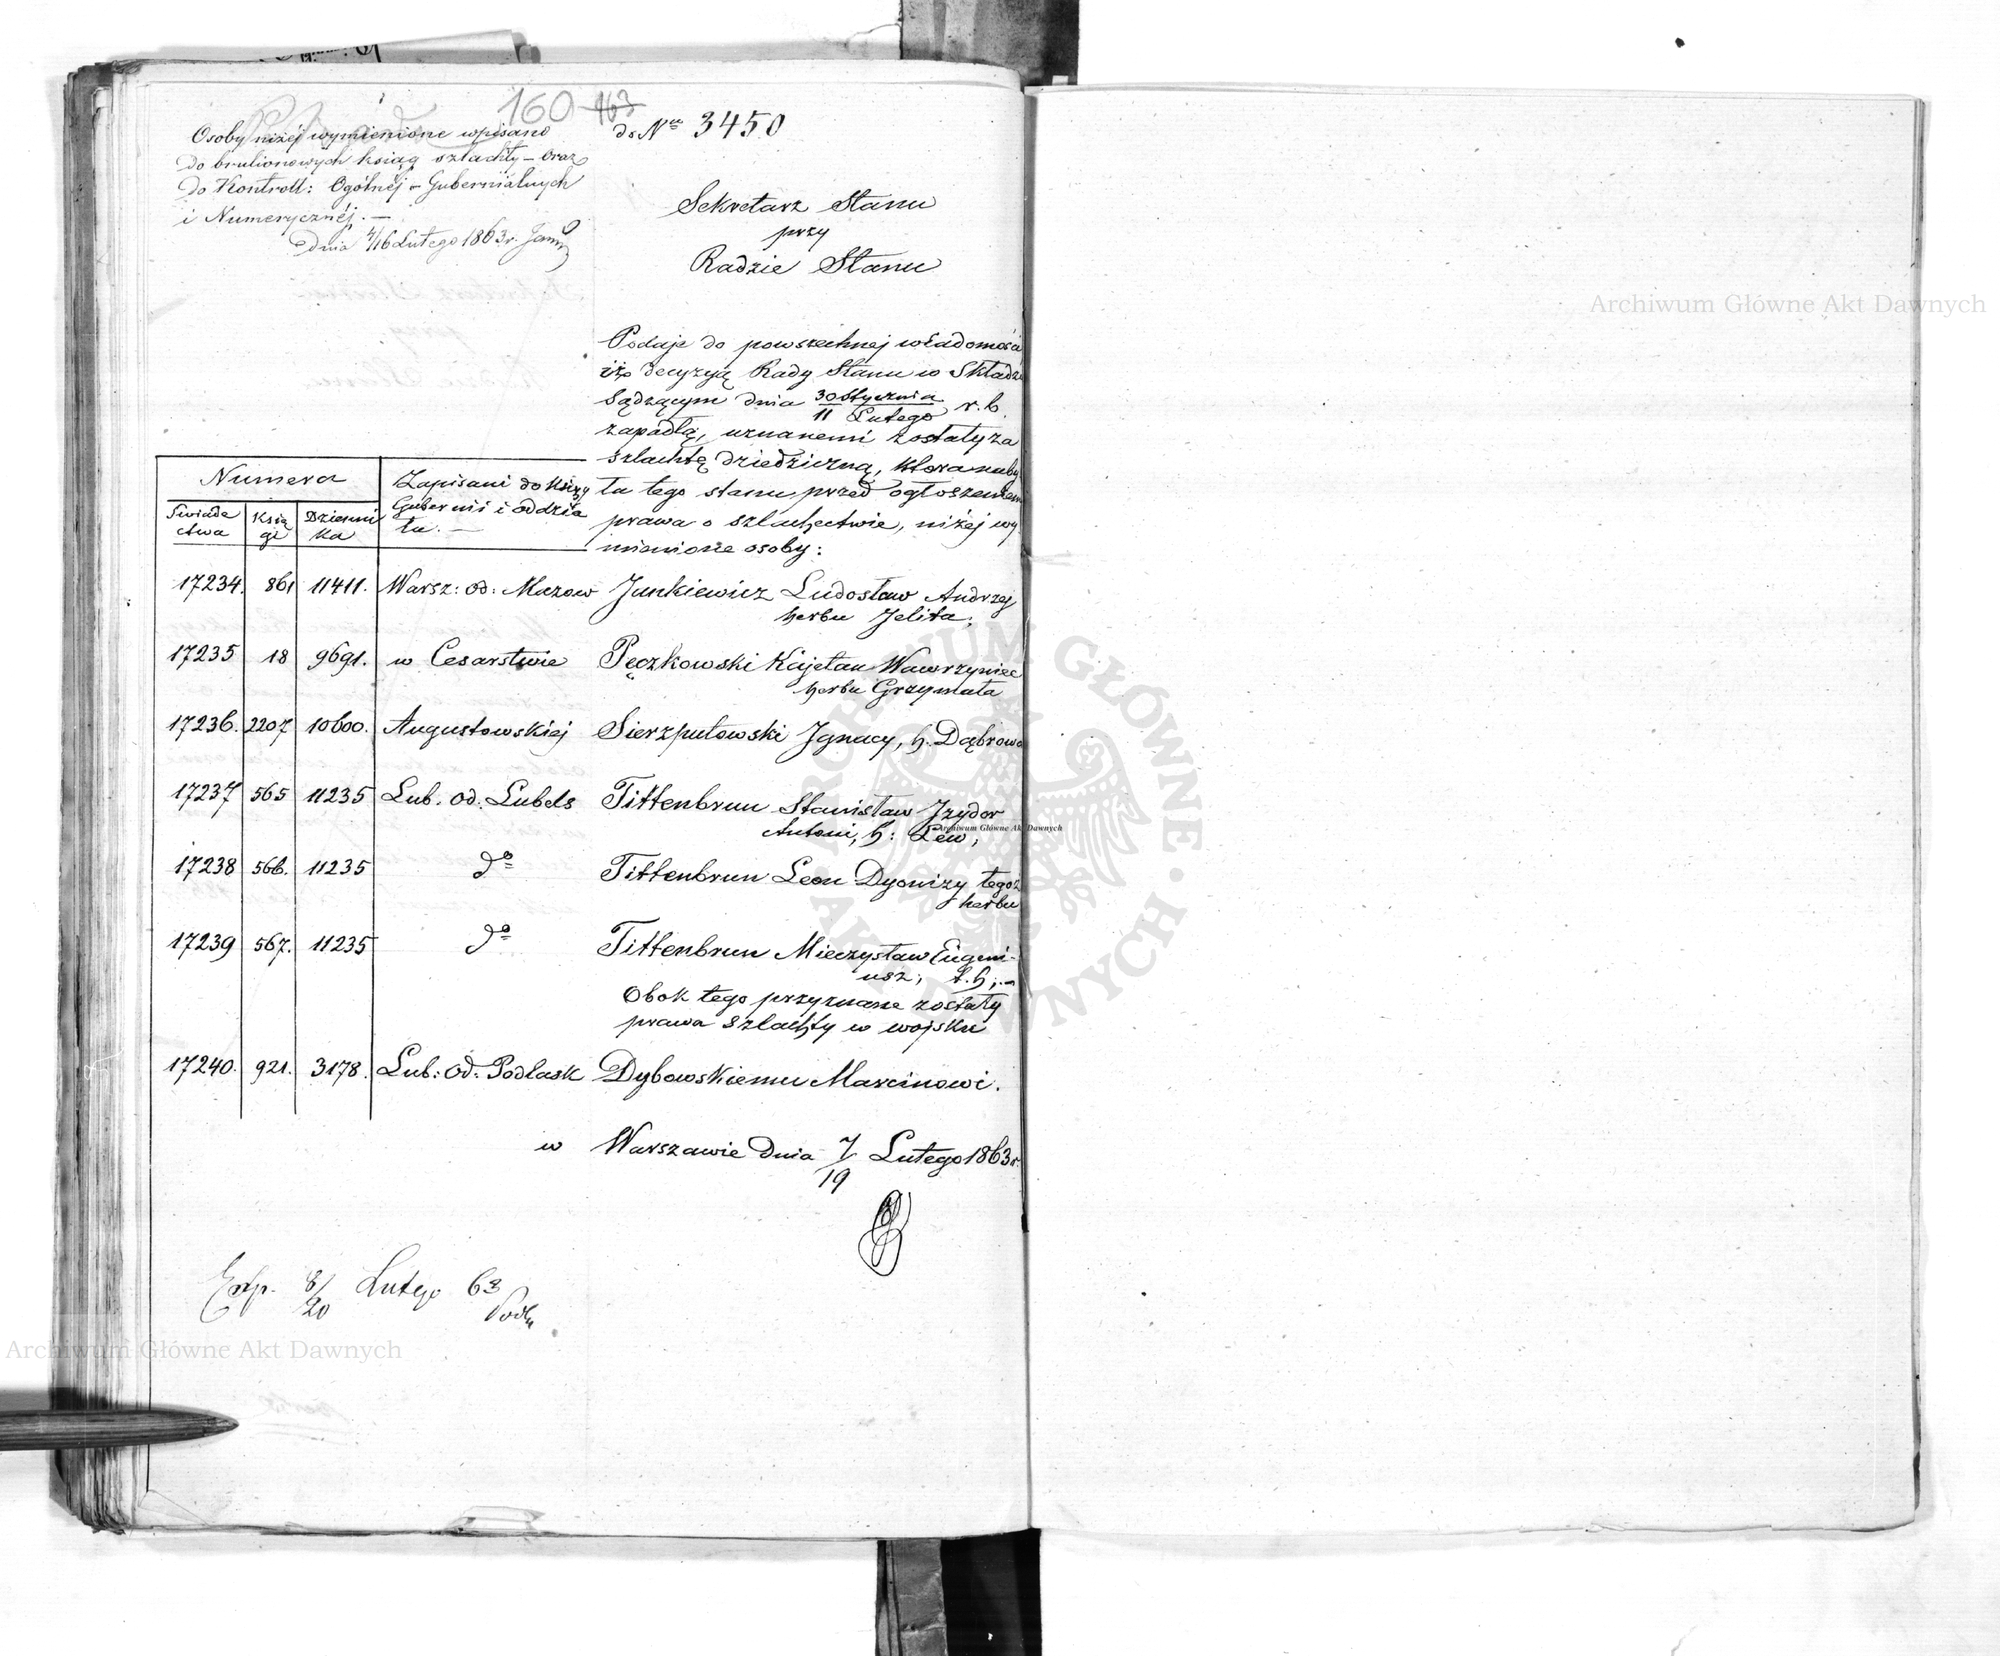 160 163
Osoby niżej wymienione wpisano
do brulionowych ksiąg szlachty – oraz
do Kontroll: Ogólnéj – Gubernialnych
i Numerycznéj. –
dnia 4/16 Lutego 1863 r.
do Nru 3450
Sekretarz Stanu
przy
Radzie Stanu
Podaje do powszechnej wiadomości
iż decyzyą Rady Stanu w Składzie
Sądzącym dnia 30 Stycznia / 11 Lutego r. b.
zapadłą, uznanemi zostały za
szlachtę dziedziczną, która naby
ła tego stanu przed ogłoszeniem
prawa o szlachectwie, niżej wy
mienione osoby:
Numera
Zapisani do Księgi
Gubernii i oddzia
łu. –
Świade
ctwa
Księ
gi
Dzienni
ka
17234. 861 11411. Warsz: od: Mazow Junkiewicz Ludosław Andrzej
herbu Jelita;
17235 18 9691. w Cesarstwie Pęczkowski Kajetan Wawrzyniec
herbu Grzymała
17236. 2207 10600. Augustowskiej Sierzputowski Ignacy, h. Dąbrowa
17237 565 11235 Lub. od. Lubels Tittenbrun Stanisław Izydor
Antoni, h: Lew;
17238 566. 11235 do Tittenbrun Leon Dyonizy tegoż
herbu
17239 567. 11235 do Tittenbrun Mieczysław Eugeni-
usz; t. h; –
Obok tego przyznane zostały
prawa szlachty w wojsku
17240. 921. 3178. Lub: od: Podlask Dybowskiemu Marcinowi.
w Warszawie dnia 7/19 Lutego 1863 r.
Exp. 8/20 Lutego 63
Archiwum Główne Akt Dawnych
Archiwum Główne Akt Dawnych
Archiwum Główne Akt Dawnych
ARCHIWUM GŁÓWNE AKT DAWNYCH